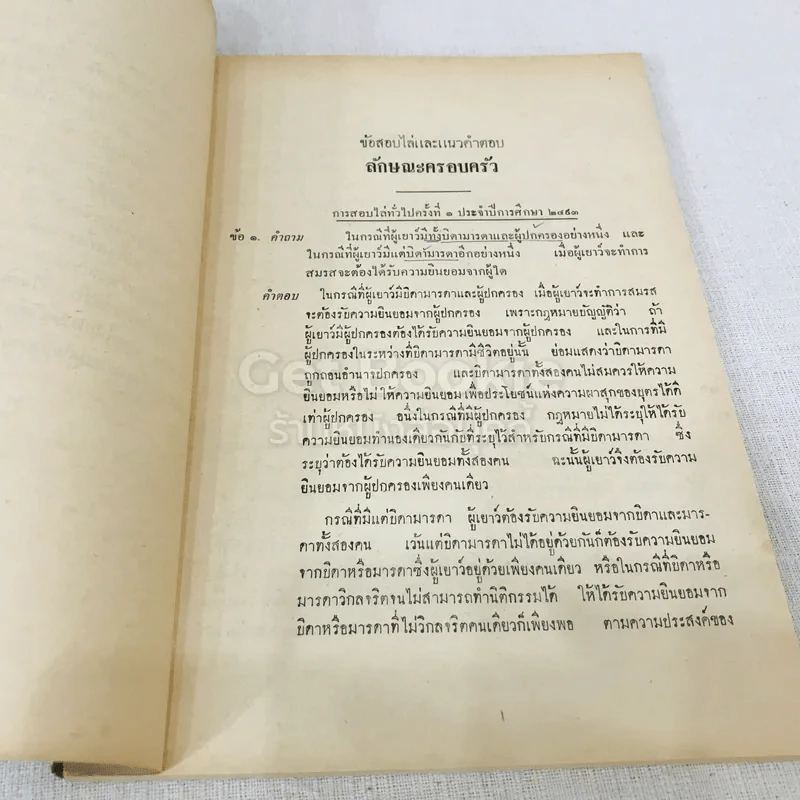 ข้อสอบไล่และแนวคำตอบ
ลักษณะครอบครัว
การสอบไล่ทั่วไปครั้งที่ ๑ ประจำปีการศึกษา ๒๔๙๓
ข้อ ๑. คำถาม ในกรณีที่ผู้เยาว์มีทั้งบิดามารดาและผู้ปกครองอย่างหนึ่ง และ
ในกรณีที่ผู้เยาว์มีแต่บิดามารดาอีกอย่างหนึ่ง เมื่อผู้เยาว์จะทำการ
สมรสจะต้องได้รับความยินยอมจากผู้ใด
คำตอบ ในกรณีที่ผู้เยาว์มีบิดามารดาและผู้ปกครอง เมื่อผู้เยาว์จะทำการสมรส
จะต้องรับความยินยอมจากผู้ปกครอง เพราะกฎหมายบัญญัติว่า ถ้า
ผู้เยาว์มีผู้ปกครองต้องได้รับความยินยอมจากผู้ปกครอง และในการที่มี
ผู้ปกครองในระหว่างที่บิดามารดามีชีวิตอยู่นั้น ย่อมแสดงว่าบิดามารดา
ถูกถอนอำนาจปกครอง และบิดามารดาทั้งสองคนไม่สมควรให้ความ
ยินยอมหรือไม่ให้ความยินยอมเพื่อประโยชน์แห่งความผาสุกของบุตรได้ดี
เท่าผู้ปกครอง อนึ่งในกรณีที่มีผู้ปกครอง กฎหมายไม่ได้ระบุให้ได้รับ
ความยินยอมทำนองเดียวกันกับที่ระบุไว้สำหรับกรณีที่มีบิดามารดา ซึ่ง
ระบุว่าต้องได้รับความยินยอมทั้งสองคน ฉะนั้นผู้เยาว์จึงต้องรับความ
ยินยอมจากผู้ปกครองเพียงคนเดียว
กรณีที่มีแต่บิดามารดา ผู้เยาว์ต้องรับความยินยอมจากบิดาและมาร-
ดาทั้งสองคน เว้นแต่บิดามารดาไม่ได้อยู่ด้วยกันก็ต้องรับความยินยอม
จากบิดาหรือมารดาซึ่งผู้เยาว์อยู่ด้วยเพียงคนเดียว หรือในกรณีที่บิดาหรือ
มารดาวิกลจริตจนไม่สามารถทำนิติกรรมได้ ให้ได้รับความยินยอมจาก
บิดาหรือมารดาที่ไม่วิกลจริตคนเดียวก็เพียงพอ ตามความประสงค์ของ